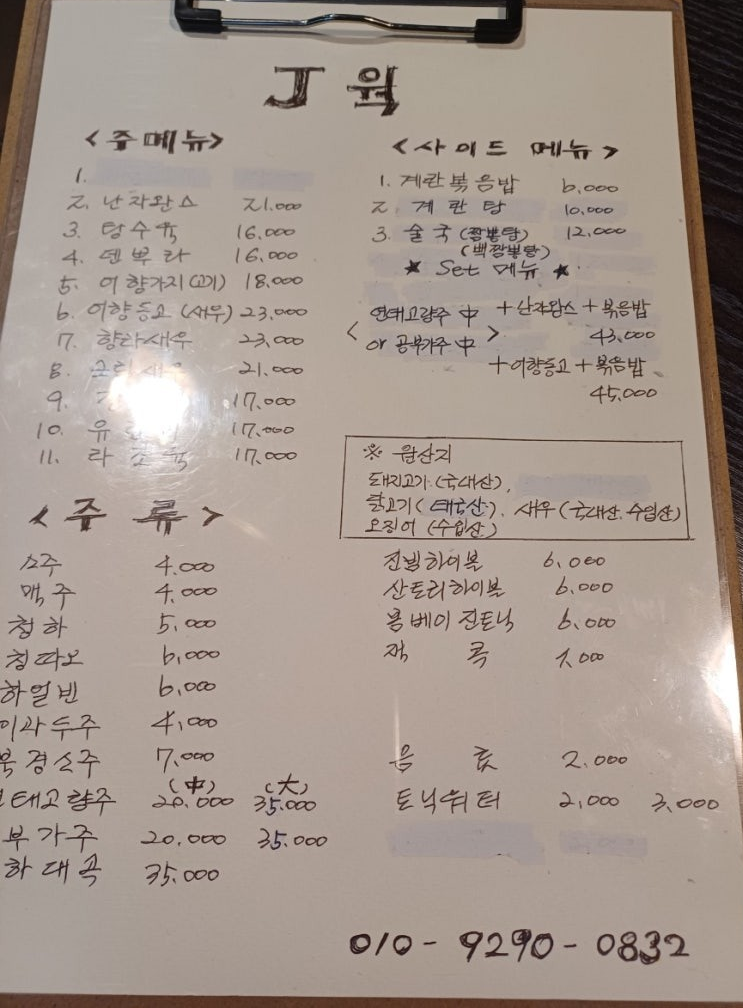 J 웍
<주메뉴>
1.
2. 난자완스 21.000
3. 탕수육 16,000
4. 덴뿌라 16,000
5. 어향가지(고기) 18.000
6. 어향동고(새우) 23,000
7. 향라새우 23,000
8. 21,000
9. 17.000
10. 유 17.000
11. 라조육 17.000
<사이드 메뉴>
1. 계란볶음밥 6,000
2. 계란탕 10,000
3. 술국(짬뽕탕) 12,000
(백짬뽕탕)
★ Set 메뉴 ★
<연태고량주 中 or 공부가주 中>
+난자완스+볶음밥
43,000
+어향동고+볶음밥
45,000
※ 원산지
돼지고기(국내산),
닭고기(태국산), 새우(국내산, 수입산)
오징어(수입산)
<주 류>
소주 4.000
맥주 4.000
청하 5,000
칭따오 6,000
하얼빈 6,000
이과두주 4,000
북경소주 7.000
(中) (大)
태고량주 20.000 35.000
부가주 20,000 35.000
하대곡 35.000
짐빔하이볼 6.000
산토리하이볼 6.000
봄베이진토닉 6.000
잭 콕 7.000
음 료 2.000
토닉워터 2,000 3,000
010-9290-0832